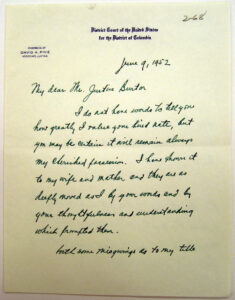 268
District Court of the United States
for the District of Columbia
CHAMBERS OF
DAVID A. PINE
ASSOCIATE JUSTICE
June 9, 1952
My dear Mr. Justice Burton
I do not have words to tell you
how greatly I value your kind note, but
you may be certain it will remain always
my cherished possession. I have shown it
to my wife and mother and they are as
deeply moved as I by your words and by
your thoughtfulness and understanding
which prompted them.
With some misgivings as to my table